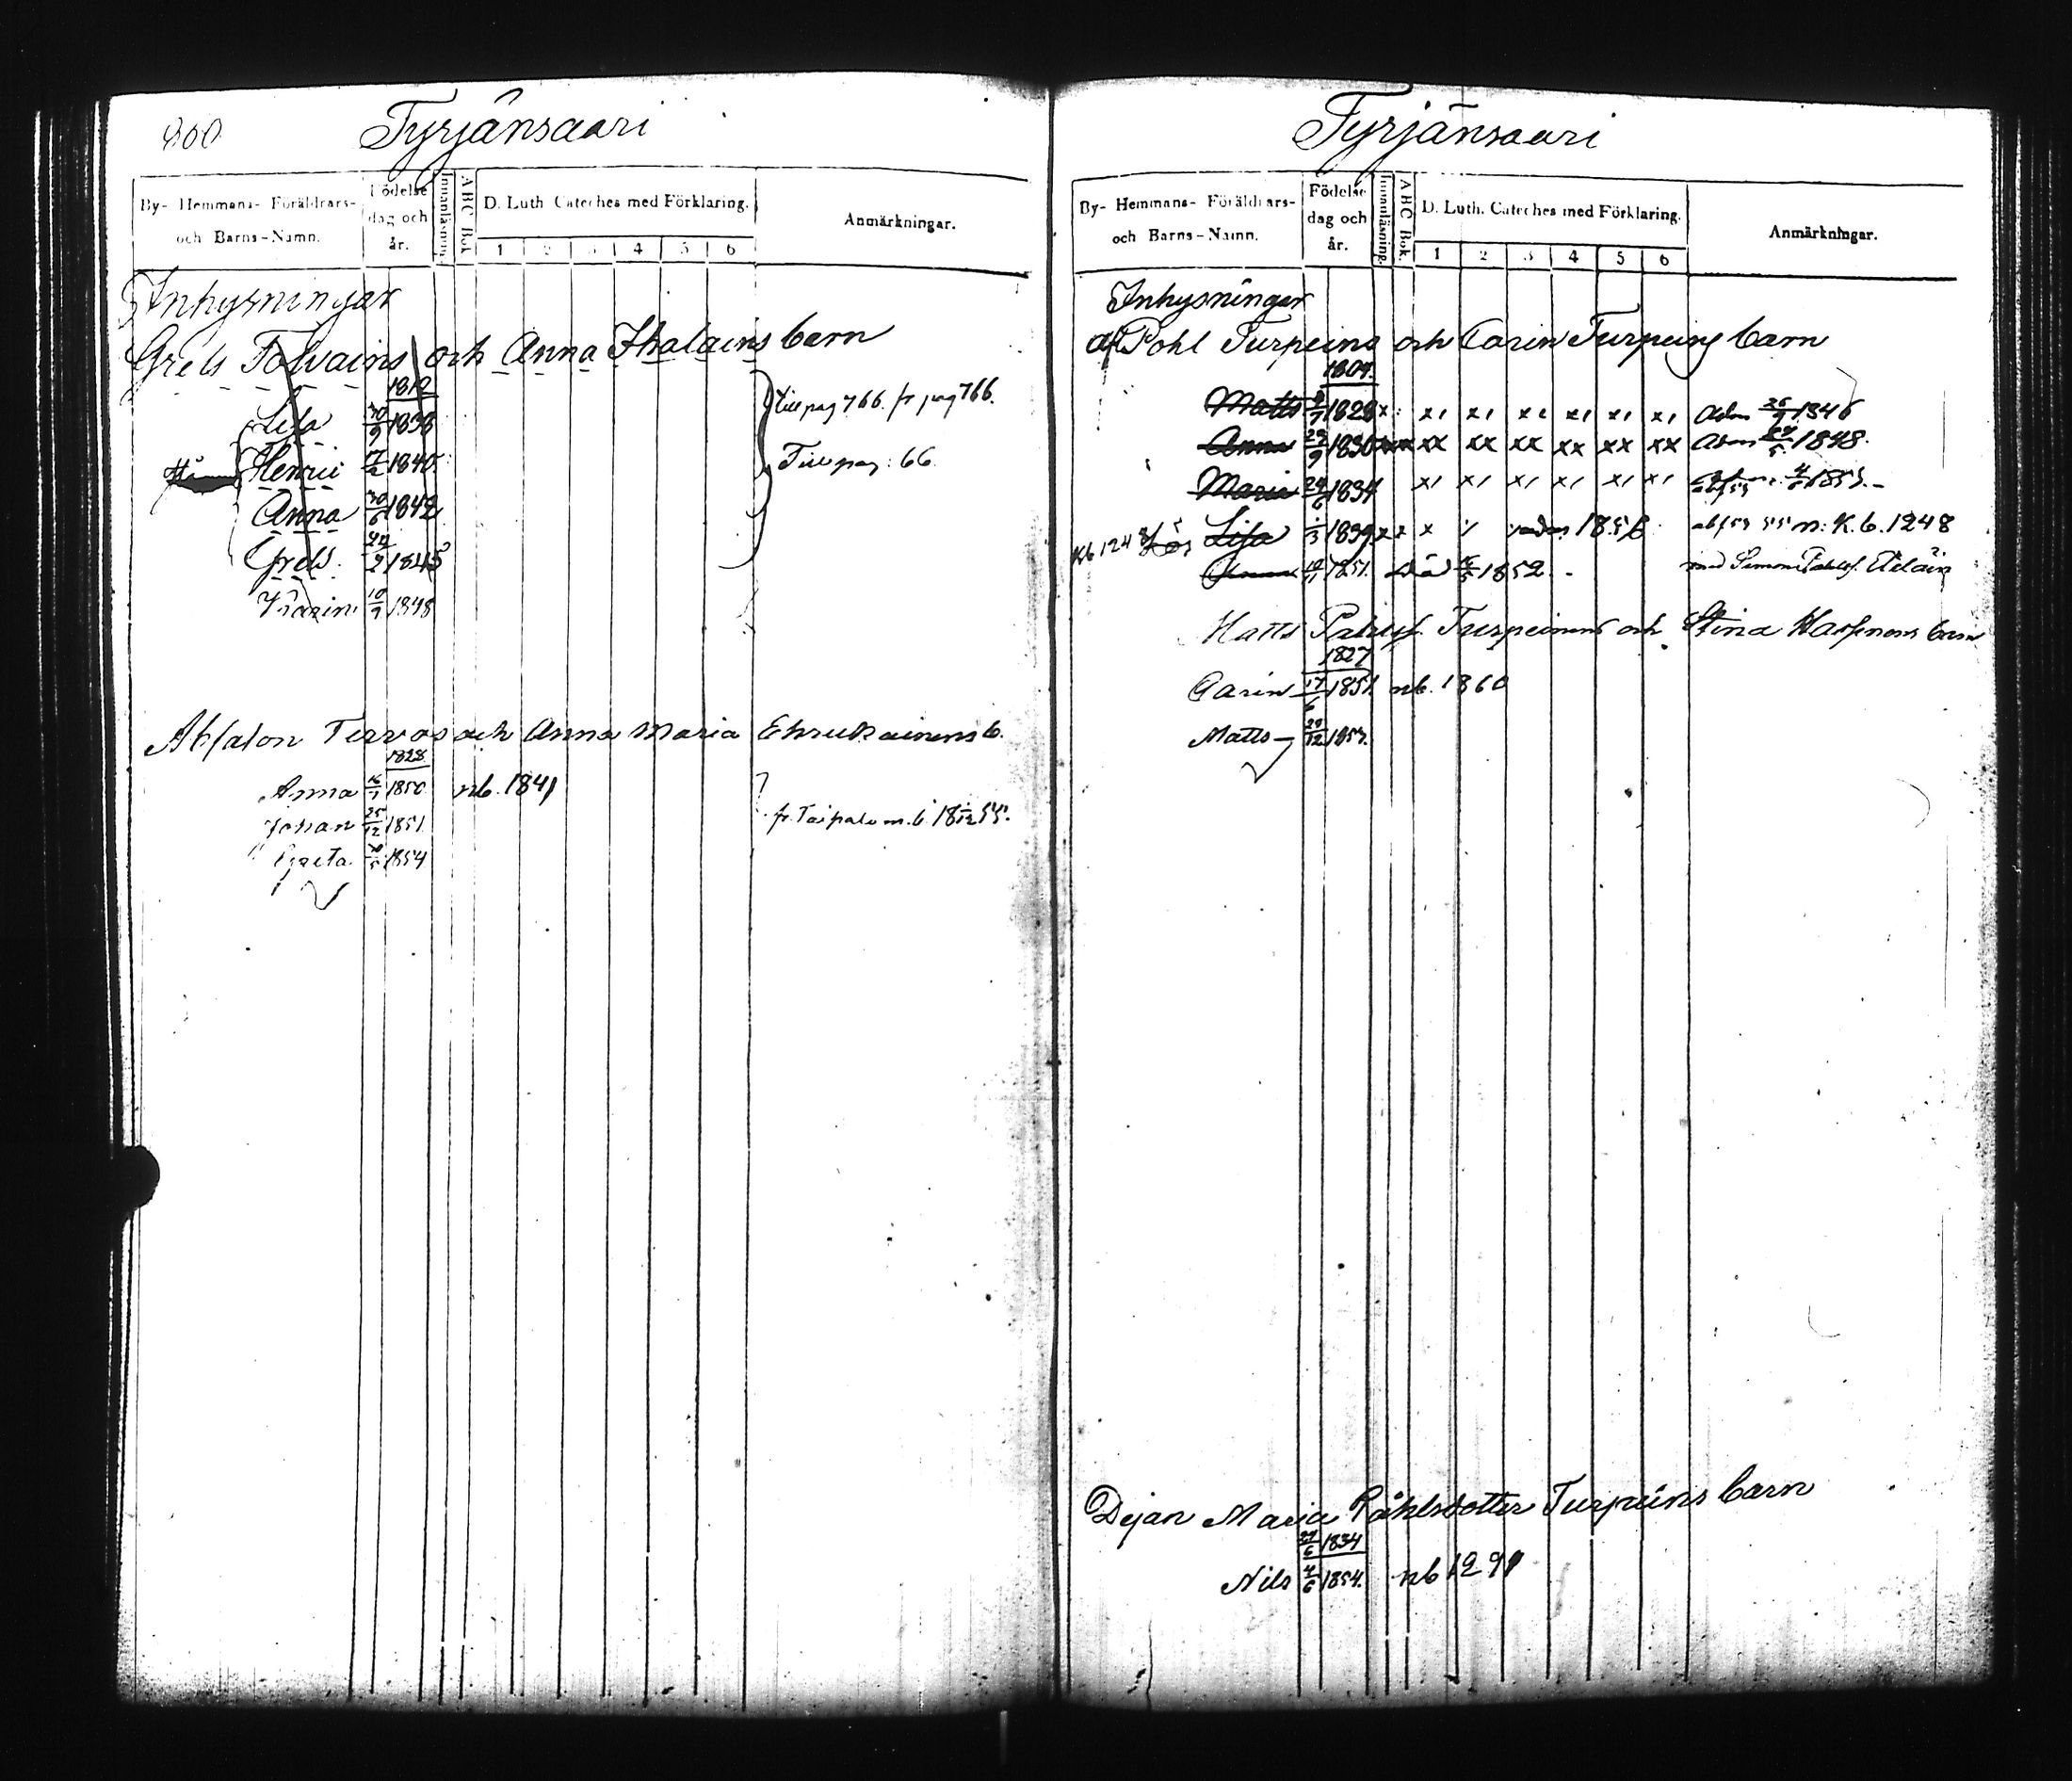 800 Tyrjänsaari
By- Hemmans- Föräldrars- och Barns-Namn. Födelse dag och år. Innanläsning. ABC Bok. D. Luth. Cateches med Förklaring. 1 2 3 4 5 6 Anmärkningar.
Inhysningar
Grels Tolvains och Anna Ikalains barn
1812
Lisa 30/9 1838 till pag 766. fr pag 766.
Henric 7/2 1840 Till pag: 66
Anna 30/6 1842
Grels. 24/2 1845
Karin 10/9 1848
Absalon Tervos och Anna Maria Ehrukainens b.
1828
Anna 16/1 1850 nb. 1841
Johan 25/12 1851 fr. Taipale m. b.
Greta 30/5 1854
Tyrjänsaari
By- Hemmans- Föräldrars- och Barns-Namn. Födelse dag och år. Innanläsning. ABC Bok. D. Luth. Cateches med Förklaring. 1 2 3 4 5 6 Anmärkningar.
Inhysningar
Pohl Turpeins och Carin Turpeins barn
1804.
Matts 1828 Adm 26/9 1846
Anna 29/9 1830 xx xx xx xx xx xx Adm 1848.
Maria 24/6 1834
Kb 1248 Lös Lisa 1839 m: K. b. 1248
1851. Död 1852. med Simon Pahlsf.
Matts Pahlsf. Turpeinens och Stina Harsinens barn
1827
Carin 17/6 1851 nb. 1860
Matts 29/12 1857.
Dejan Maria Påhlsdotter Turpeins barn
24/6 1834
Nils 4/6 1854. nb 1291